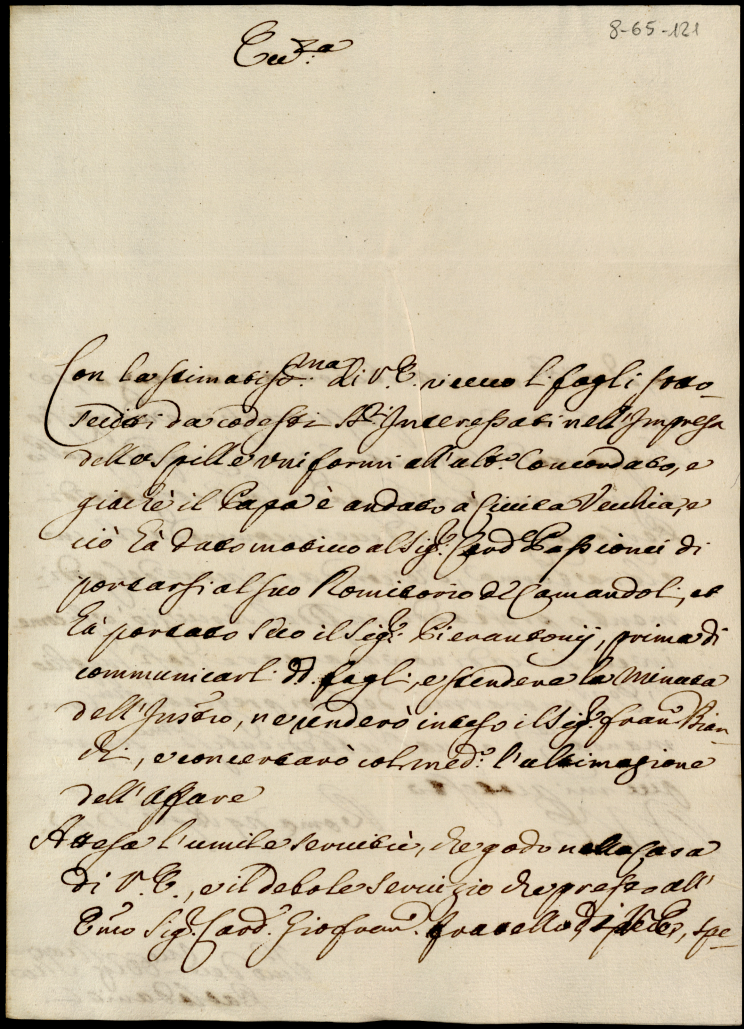 8-65-121
Ecc.za
Con la stimatiss.ma di V. E. ricevo li fogli sotto-
scritti da codesti SS.ri Interessati nell'Impresa
delle Spille uniformi all'alt.o Concordato, e
giachè il Papa è andato à Civita Vecchia, e
ciò hà dato motivo al Sig.r Card.e Passionei di
portarsi al suo Romitorio de Camandoli, et
hà portato seco il Sig.r Pierantonij, prima di
communicarli dd. fogli, e stendere la Minuta
dell'Instro, ne renderò inteso il Sig.r Fran.co Bian-
chi, e concertarò col med.o l'ultimazione
dell'Affare
Attesa l'umile servitù, che godo nella Casa
di V. E., e il debole servizio che presto all'
E.mo Sig.r Card. Giofran.co fratello di V. E., spe-